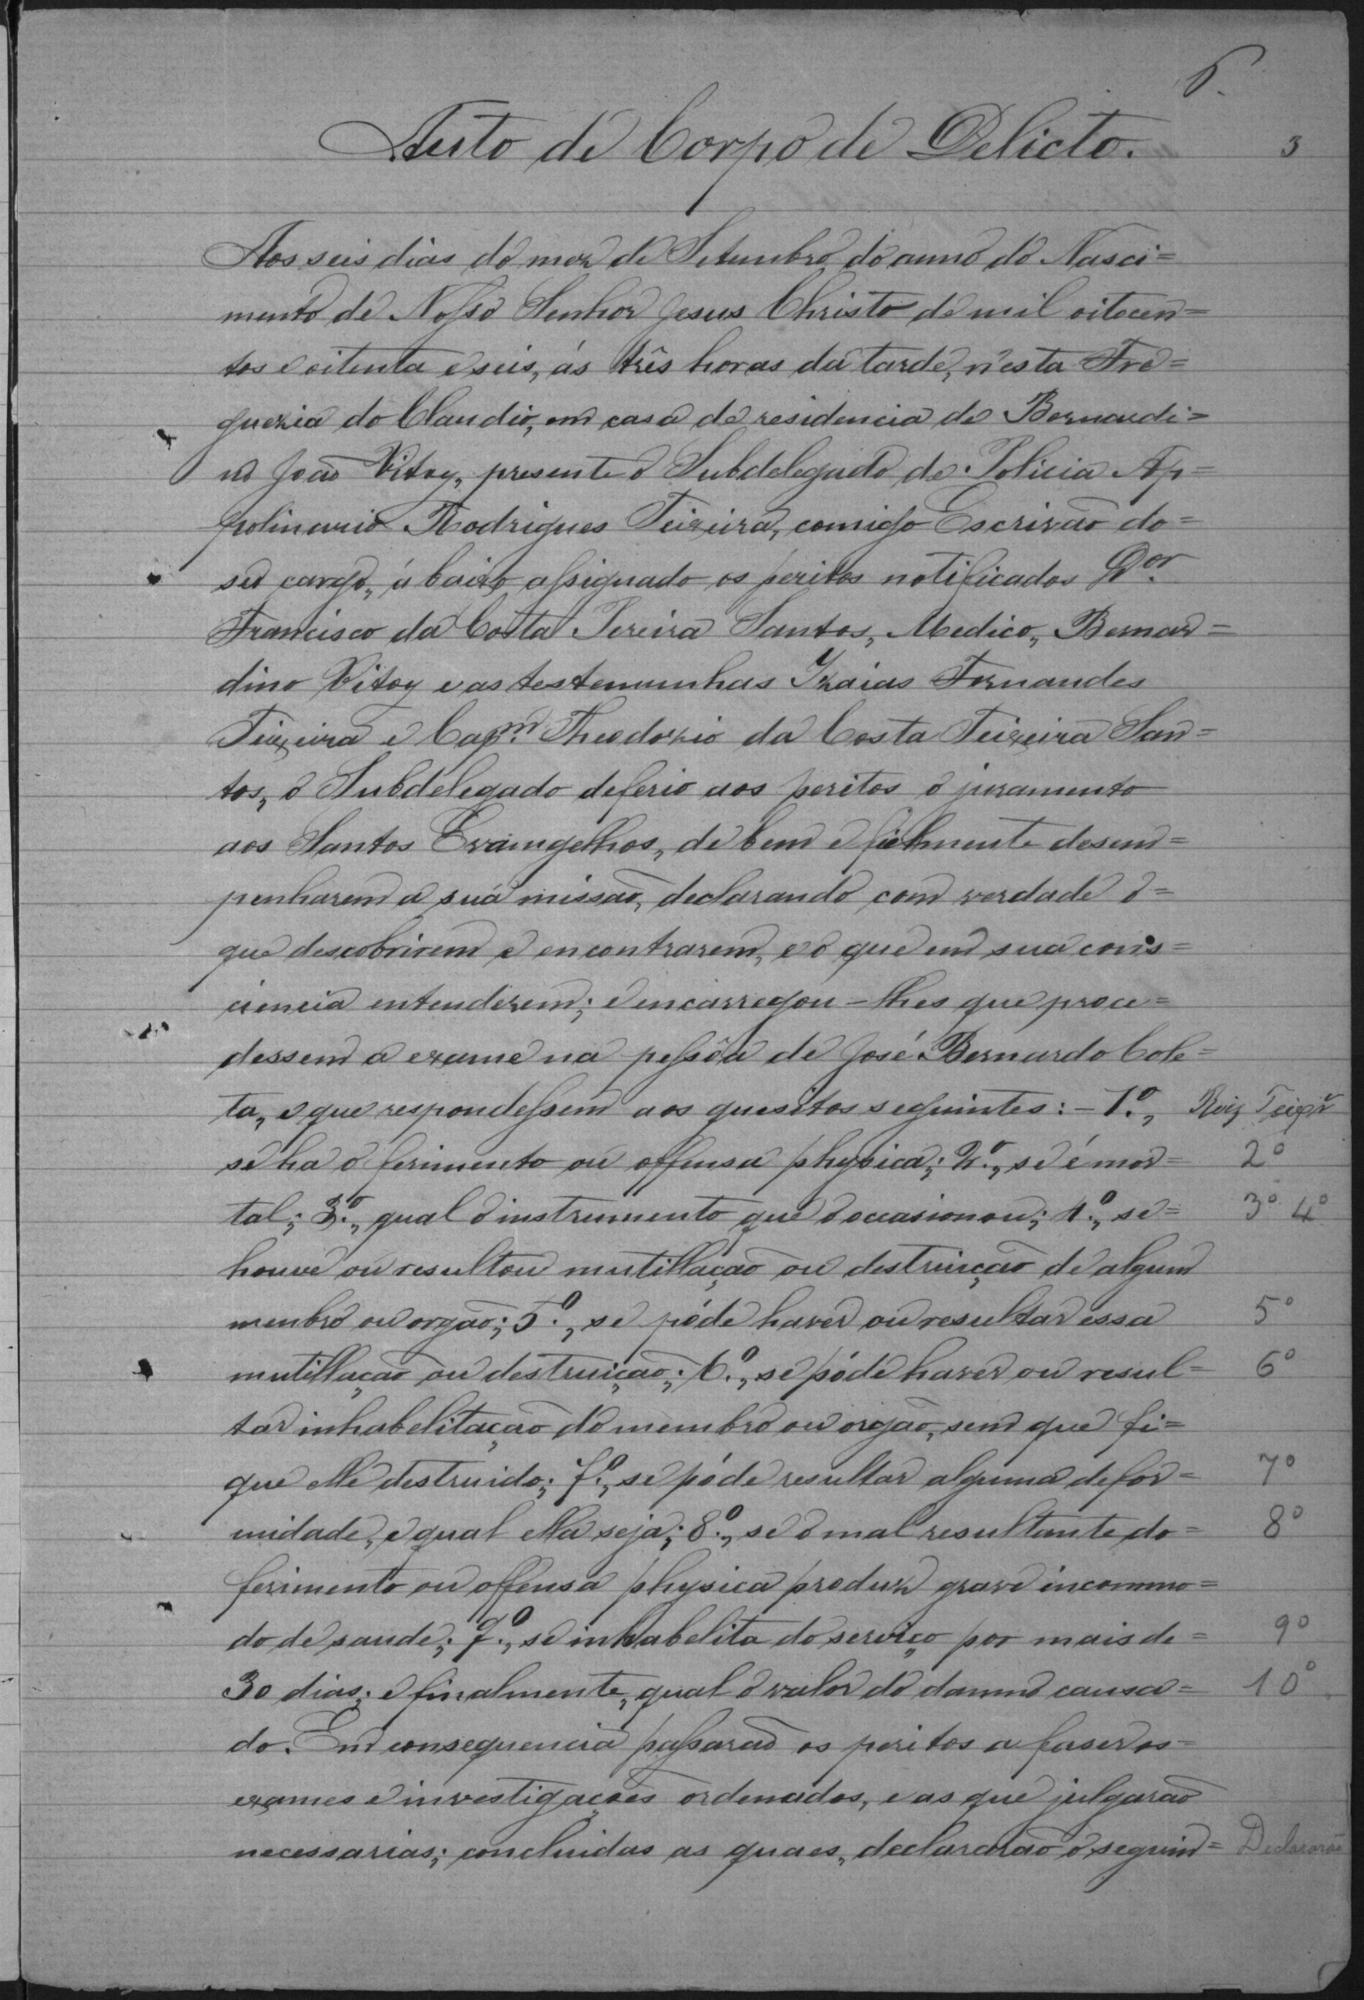 6.
Auto de Corpo de Delicto. 3
Aos seis dias do mez de Setembro do anno do Nasci=
mento de Nosso Senhor Jesus Christo de mil oitocen=
tos e oitenta e seis, ás três horas da tarde, n'esta Fre=
guezia do Claudio, em casa de residencia de Bernardi=
no João Vitoy, presente o Subdelegado de Policia Ap=
polinario Rodrigues Teixeira, comigo Escrivão do=
seo cargo, á baixo assignado os peritos notificados Dor.
Francisco da Costa Pereira Santos, Medico, Bernar=
dino Vitoy e as testemunhas Izaias Fernandes
Teixeira e Capm. Theodozio da Costa Teixeira San=
tos, o Subdelegado deferio aos peritos o juramento
aos Santos Evangelhos, de bem e fielmente desem=
penharem a sua missão, declarando com verdade o=
que descobrirem e encontrarem, e o que em sua cons=
ciencia entenderem; e encarregou-lhes que proce=
dessem a exame na pessôa de José Bernardo Cole=
ta, e que respondessem aos quesitos seguintes:- 1.º, Roiz Teixrª
se ha o ferimento ou offensa physica; 2.º, se é mor= 2º
tal; 3.º, qual o instrumento que o occasionou; 4.º, se= 3º 4º
houve ou resultou mutillação ou destruição de algum
membro ou orgão; 5.º, se póde haver ou resultar essa 5º
mutillação ou destruição; 6.º, se póde haver ou resul= 6º
tar inhabelitação do membro ou orgão, sem que fi=
que elle destruido; 7.º, se póde resultar alguma defor= 7º
midade, e qual ella seja; 8.º, se o mal resultante do= 8º
ferimento ou offensa physica produz grave incommo=
do de saude; 9.º, se inhabelita do serviço por mais de= 9º
30 dias; e finalmente, qual o valor do damno causa= 10º
do. Em consequencia passarão os peritos a faser os=
exames e investigações ordenados, e as que julgarão
necessarias; concluidas as quaes, declararão o seguin= Declararão